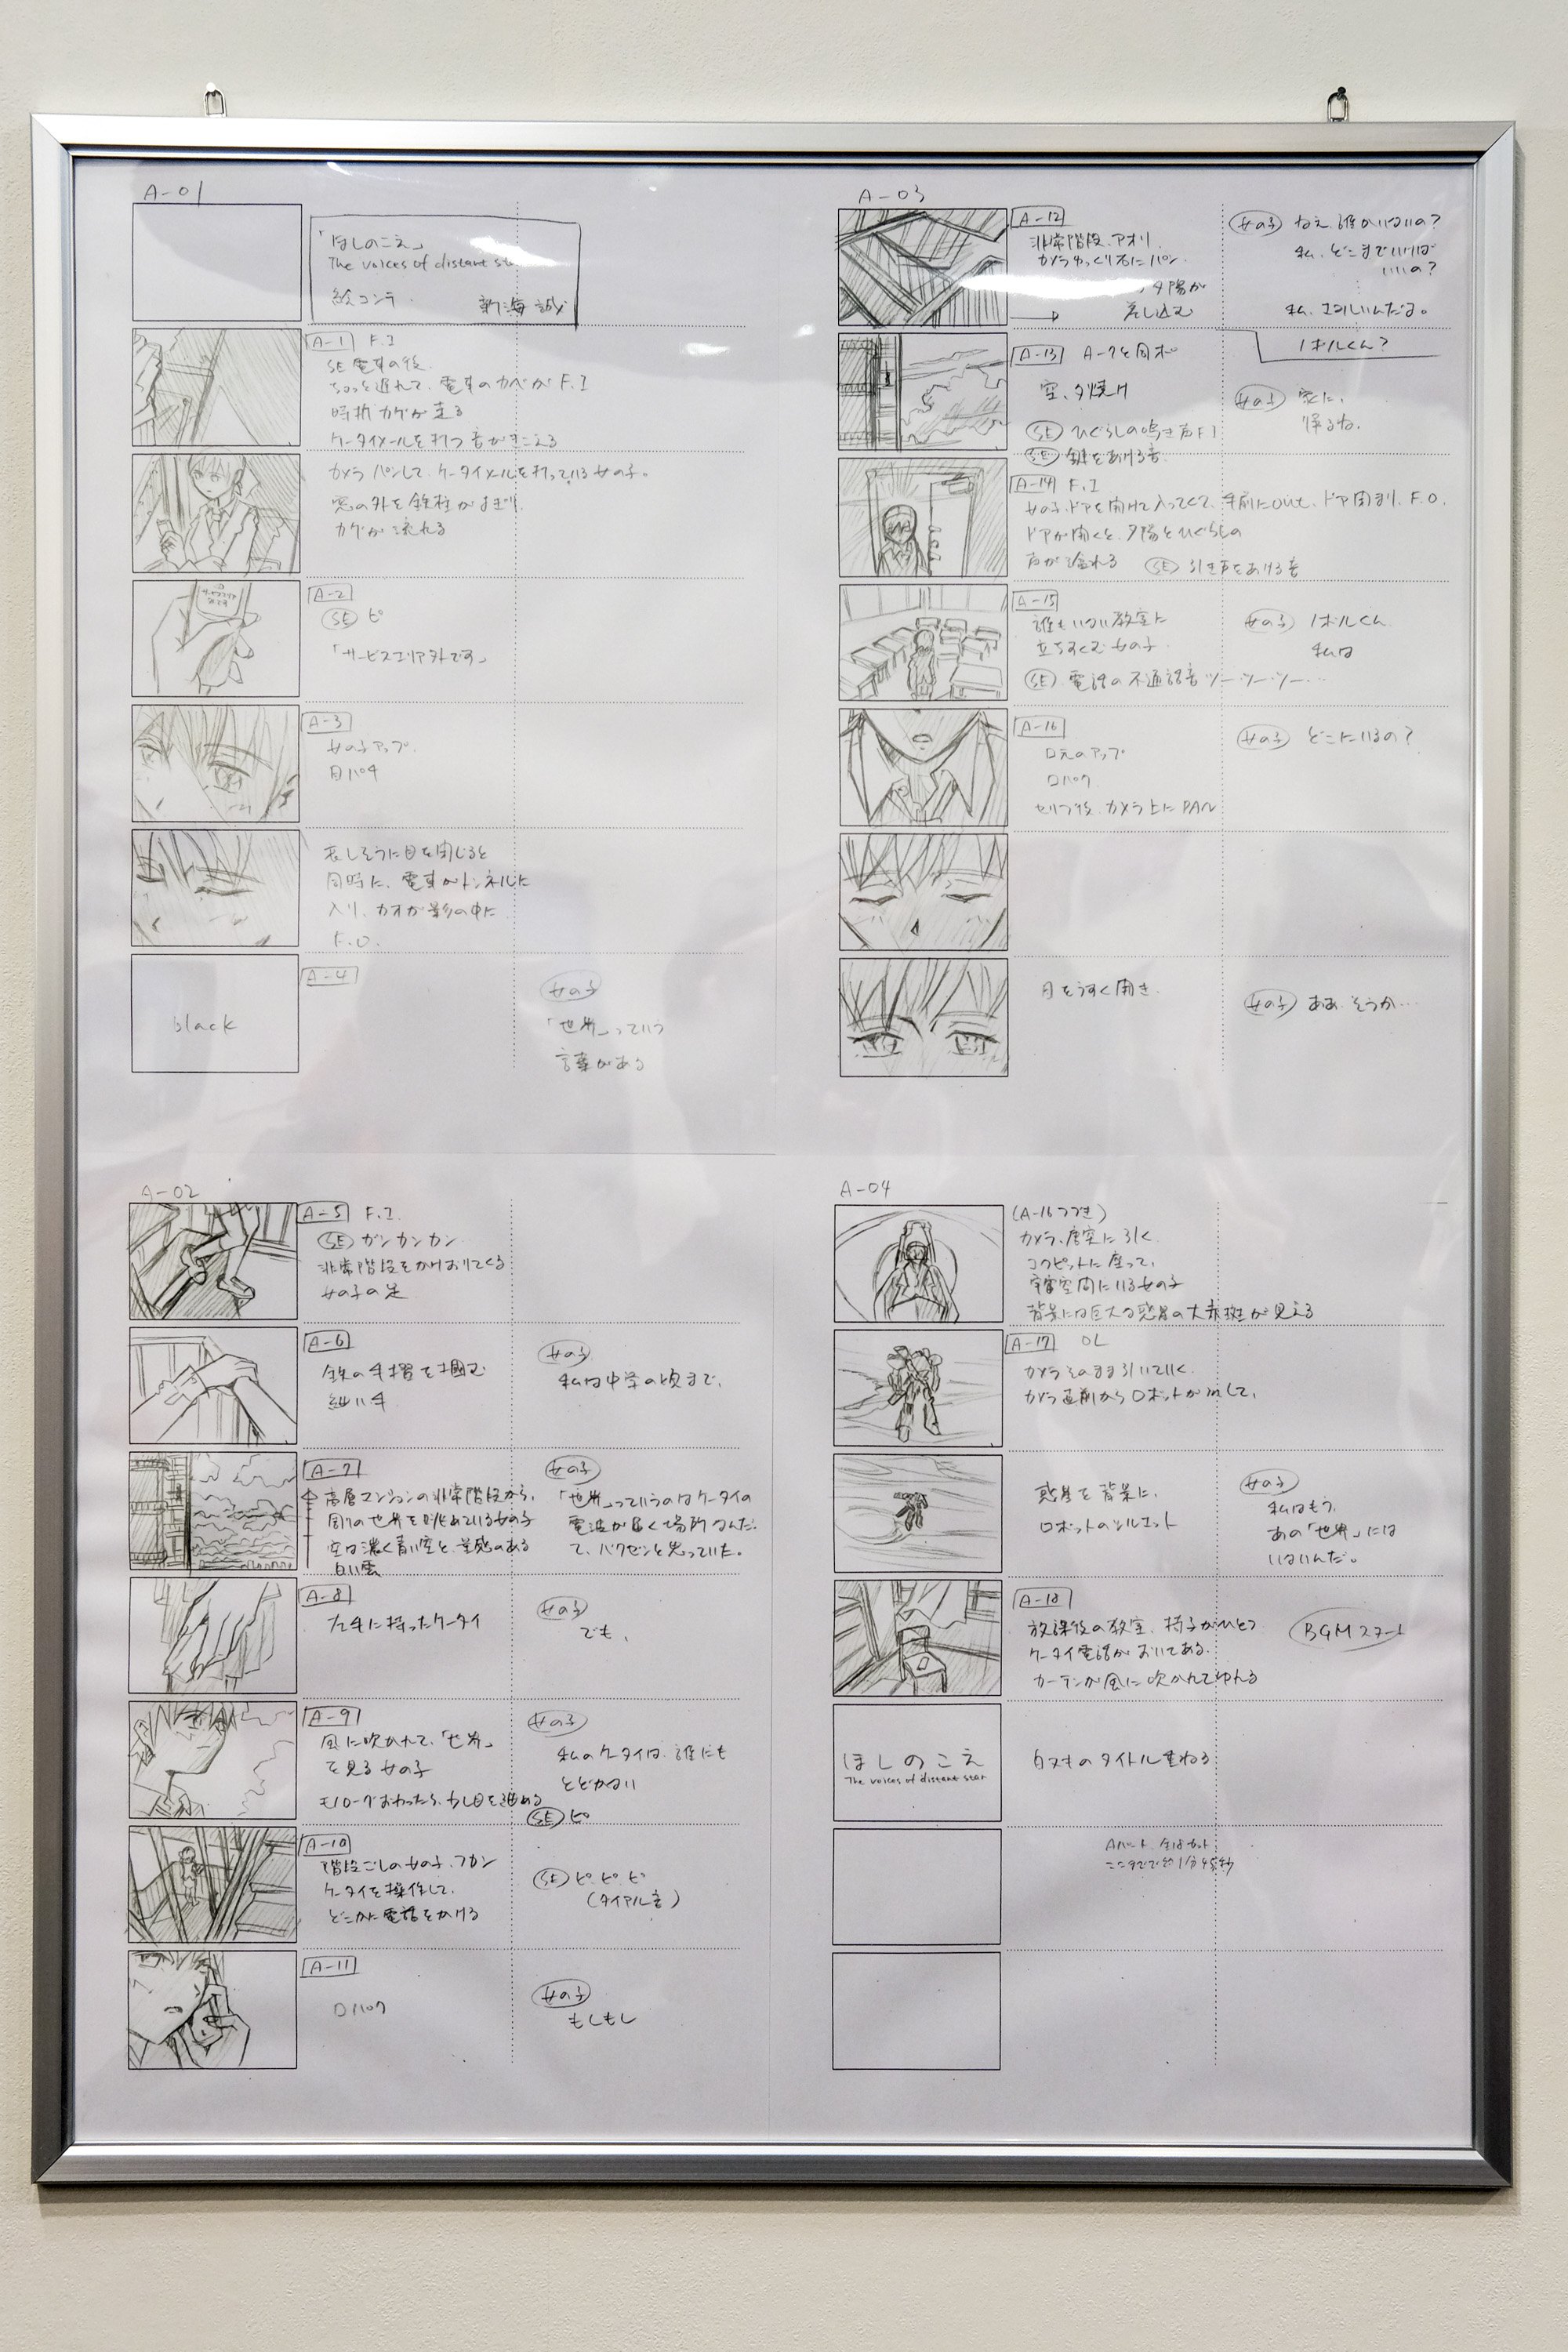 A-01
「ほしのこえ」
The voices of distant st
絵コンテ. 新海 誠
A-1 F.I
SE 電車の後.
ちょっと遅れて、電車のカベがF.I
時折カゲが走る
ケータイメールを打つ音がきこえる
カメラパンして、ケータイメールを打っている女の子。
窓の外を鉄柱がよぎり、
カゲが流れる
A-2
SE ピ
「サービスエリア外です」
A-3
女の子アップ.
目パチ
哀しそうに目を閉じると
同時に、電車がトンネルに
入り、カオが影の中に
F.O.
A-4
black
女の子
「世界」っていう
言葉がある
A-02
A-5 F.I.
SE ガンカンカン
非常階段をかけおりてくる
女の子の足
A-6
鉄の手摺を掴む
細い手
女の子
私は中学の頃まで、
A-7
高層マンションの非常階段から、
周りの世界を眺めている女の子
空は濃く青い空と、量感のある
白い雲
女の子
「世界」っていうのはケータイの
電波が届く場所なんだ、
て、バクゼンと思っていた。
A-8
左手に持ったケータイ
女の子
でも、
A-9
風に吹かれて、「世界」
を見る女の子
モノローグおわったら、少し目を
女の子
私のケータイは、誰にも
とどかない
SE ピ
A-10
階段ごしの女の子、フカン
ケータイを操作して、
どこかに電話をかける
SE ピ、ピ、ピ
(ダイアル音)
A-11
口パク
女の子
もしもし
A-03
A-12
非常階段、アオリ.
カメラゆっくり右にパン
夕陽が
差し込む
女の子 ねえ、誰かいないの?
私、どこまでいけば
いいの?
私、さみしいんだよ。
ノボルくん?
A-13 A-7と同ポ
空、夕焼け
SE ひぐらしの鳴き声F.I
SE 鍵をあける音
女の子 家に、
帰るね.
A-14 F.I
女の子、ドアを開けて入ってくて、手前にout、ドア閉まり、F.O.
ドアが開くと、夕陽とひぐらしの
声が溢れる SE 引き戸をあける音
A-15
誰もいない教室に
立ちすくむ女の子
SE 電話の不通話音ツー・ツー・ツー・・・
女の子 ノボルくん
私は
A-16
口元のアップ
口パク
セリフ後、カメラ上にPAN
女の子 どこにいるの?
目をうすく開き.
女の子 ああ、そうか…
A-04
(A-16つづき)
カメラ、唐突に引く
コクピットに座って、
宇宙空間にいる女の子
背景には巨大な惑星の大赤斑が見える
A-17 OL
カメラそのまま引いていく.
カメラ直前からロボットがinして、
惑星を背景に、
ロボットのシルエット
女の子
私はもう、
あの「世界」には
いないんだ。
A-18
放課後の教室、椅子がひとつ
ケータイ電話がおいてある.
カーテンが風に吹かれてゆれる
BGM27-1
ほしのこえ
The voices of distant star
白ヌキのタイトル重ねる
Aパート 全18カット
ここまでで約1分45秒